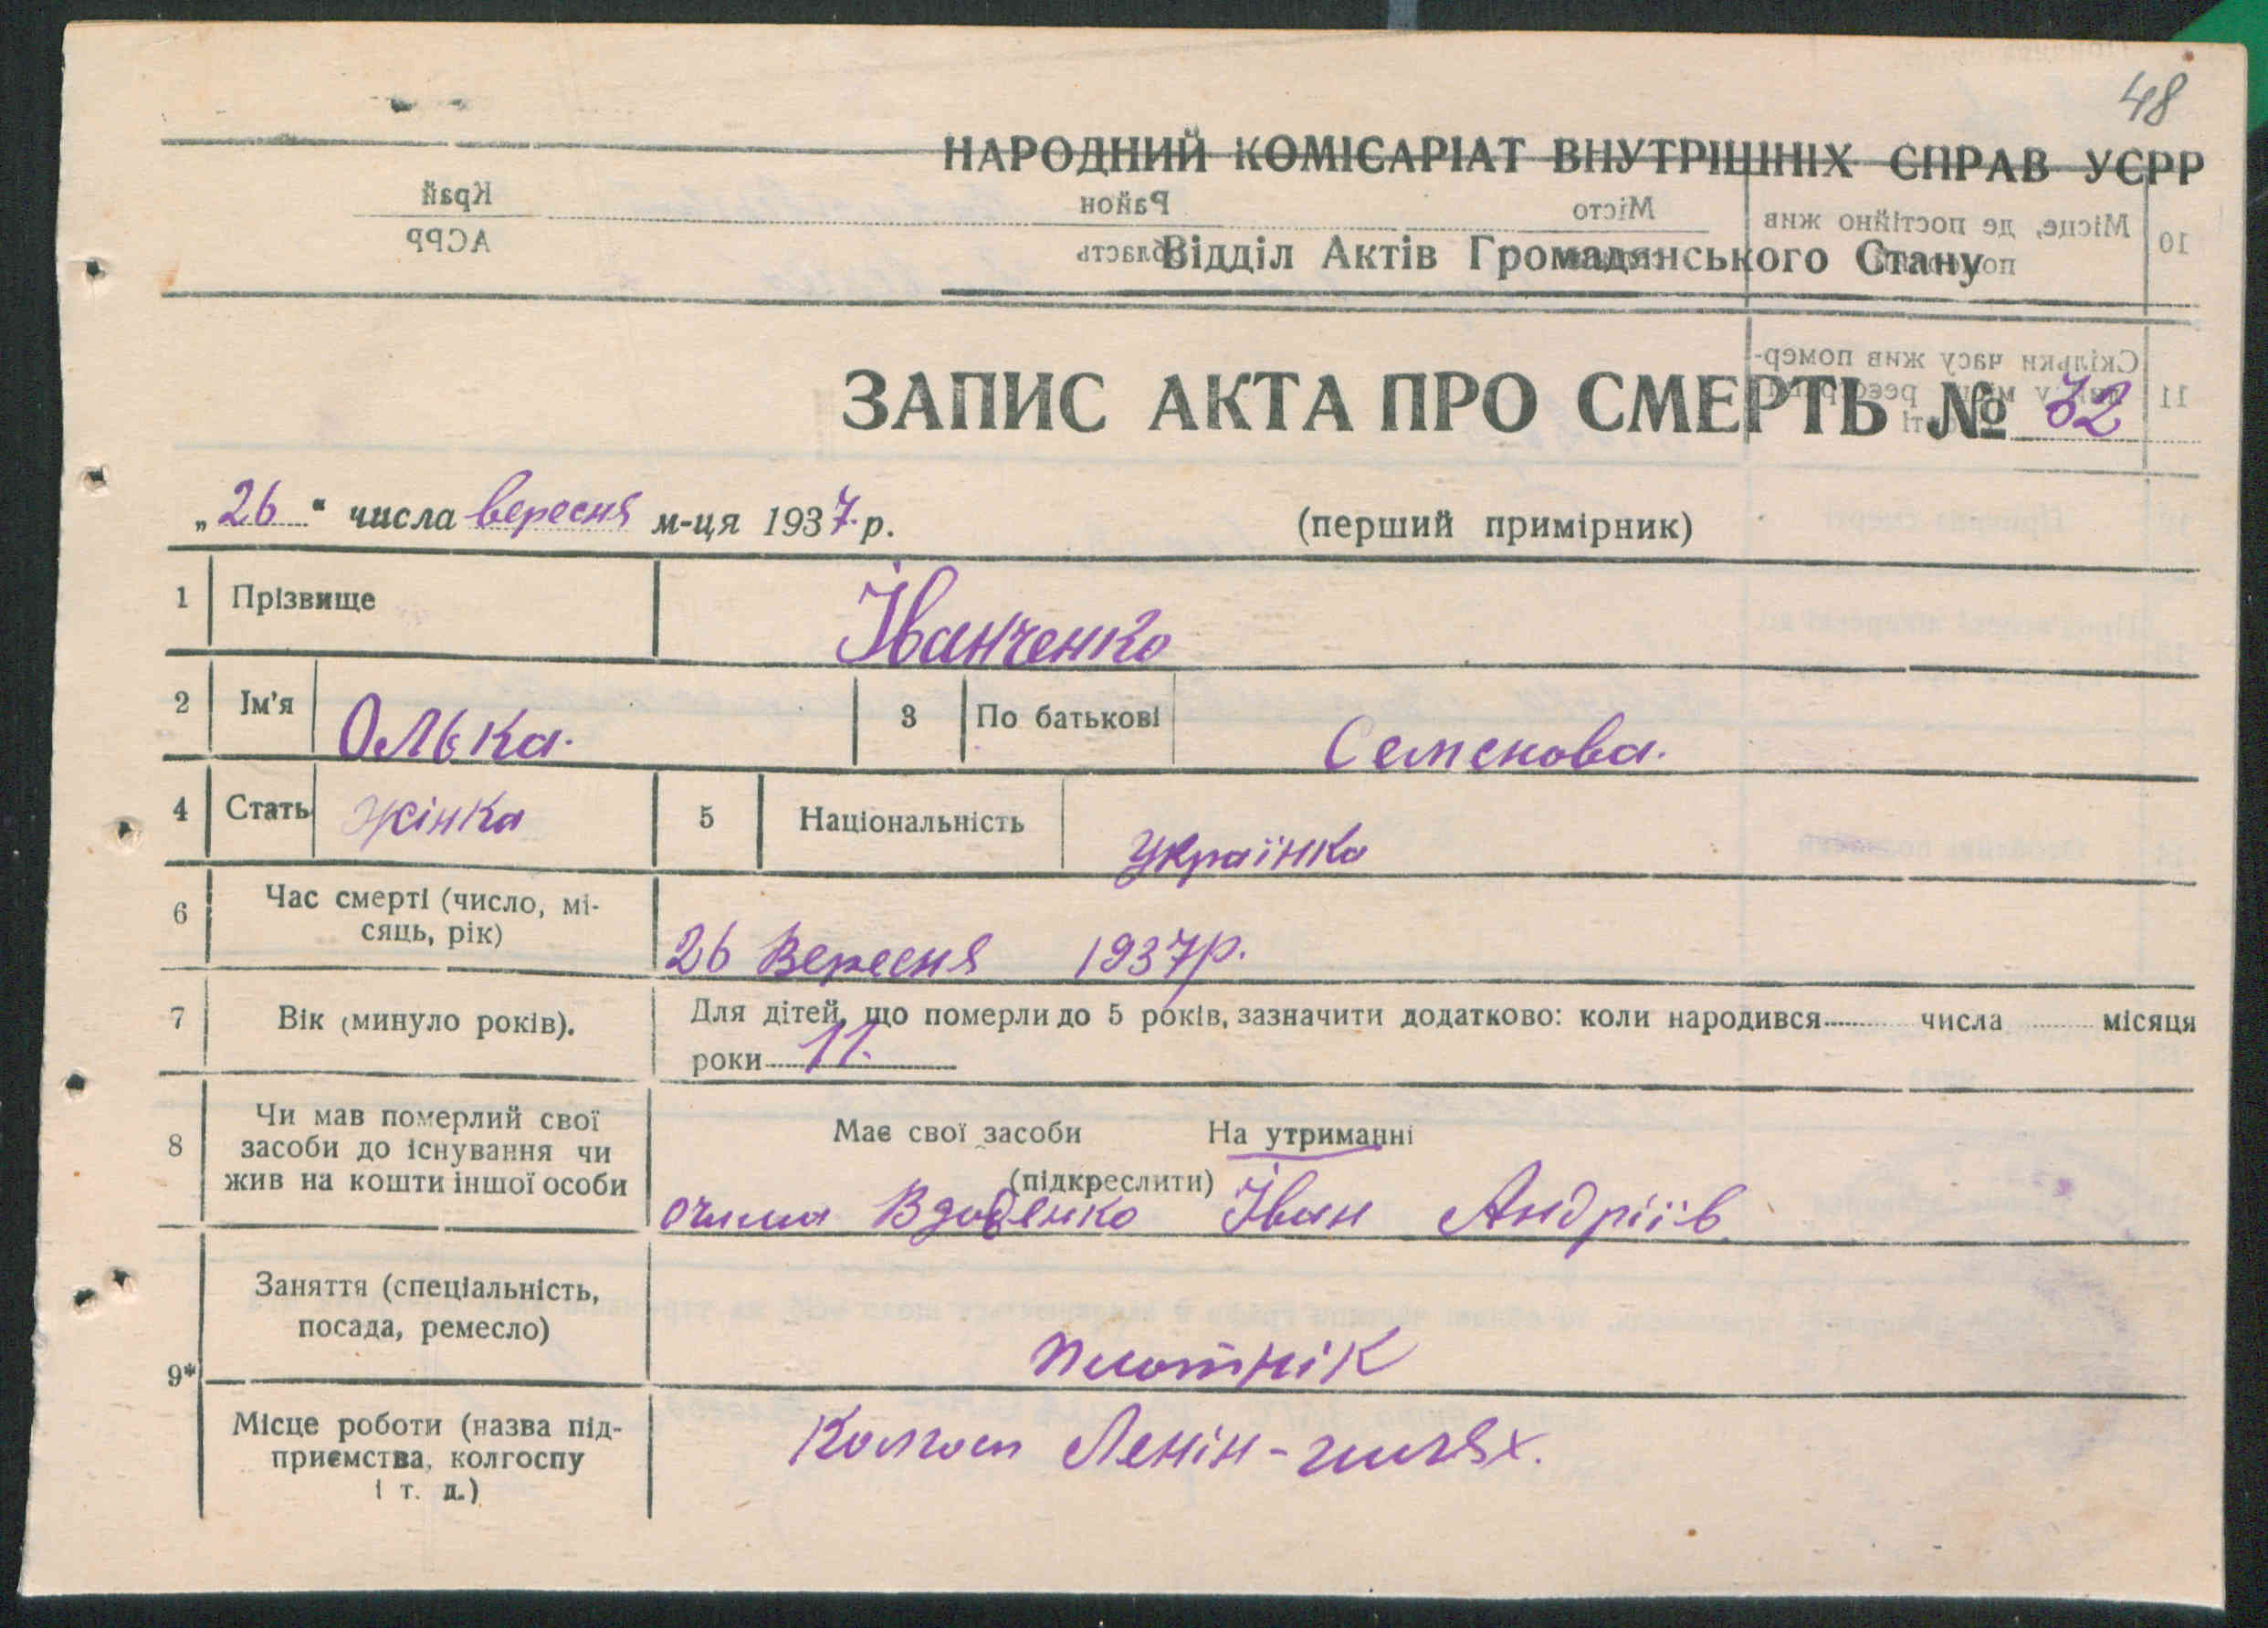 48
НАРОДНИЙ КОМІСАРІАТ ВНУТРІШНІХ СПРАВ УСРР
Відділ Актів Громадянського Стану
ЗАПИС АКТА ПРО СМЕРТЬ № 32
„26“ числа вересня м-ця 1937 р. (перший примірник)
1 Прізвище Іванченко
2 Ім'я Олька. 3 По батькові Семенова.
4 Стать жінка 5 Національність українка
6 Час смерті (число, мі-
сяць, рік) 26 Вересня 1937р.
7 Вік (минуло років). Для дітей, що померли до 5 років, зазначити додатково: коли народився числа місяця
роки 11.
8 Чи мав померлий свої
засоби до існування чи
жив на кошти іншої особи
Має свої засоби На утриманні
(підкреслити)
Іван Андріїв.
9* Заняття (спеціальність,
посада, ремесло) плотнік
Місце роботи (назва під-
приємства, колгоспу
і т. д.)
Колгосп Ленін-шлях.
Край
АСРР
Район
область
Місто
Місце, де постійно жив
10
11
Скільки часу жив помер-